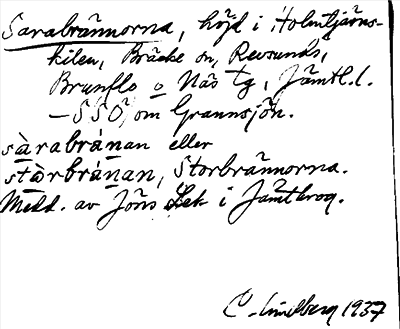 Sarabrännorna, höjd i Holmtjärns-
kilen, Bräcke sn, Revsunds,
Brunflo o Näs tg, Jämtl. l.
– SSO om Grannsjön.
sàrabránan eller
stàrbránan, Storbrännorna.
Medd. av Jöns Lek i Jämtkrog.
C. Lindberg 1937